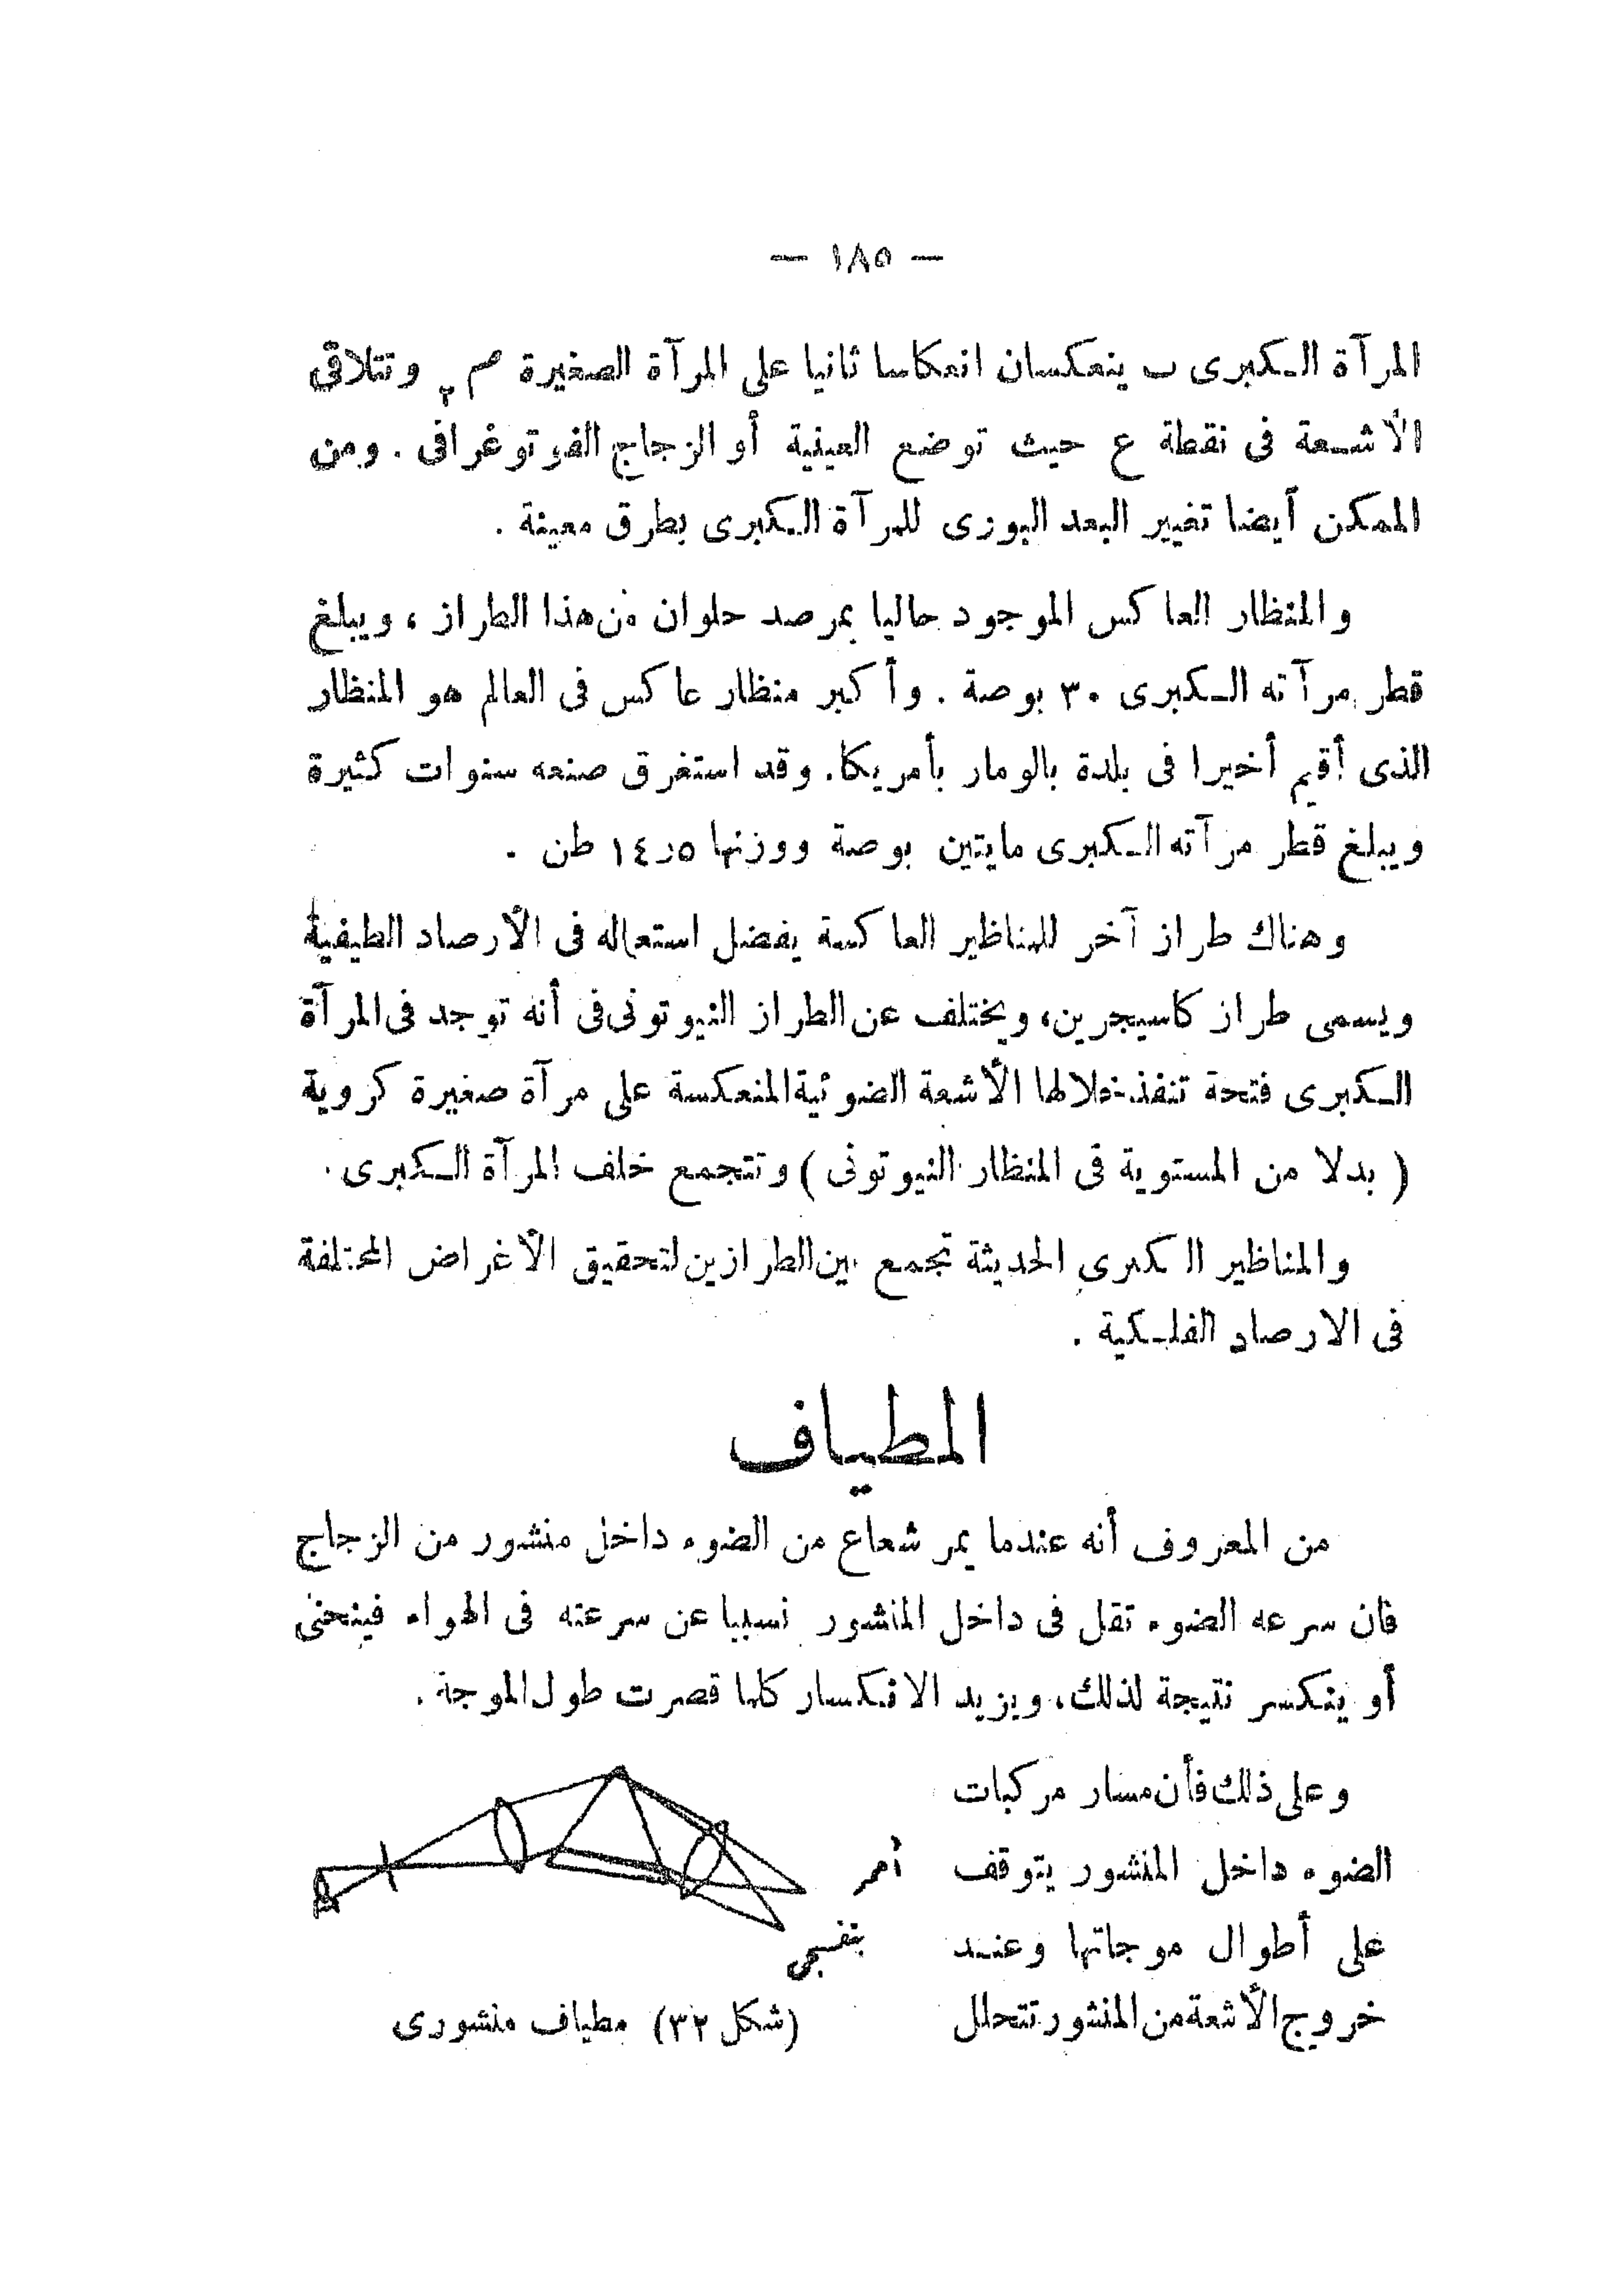 — ١٨٥ —
المرآة الكبرى ب ينعكسان انعكاسا ثانيا على المرآة الصغيرة م٢ وتتلاقى
الأشعة فى نقطة ع حيث توضع العينية أو الزجاج الفوتوغرافى . ومن
الممكن أيضا تغيير البعد البوزى للمرآة الكبرى بطرق معينة .
والمنظار العاكس الموجود حاليا بمرصد حلوان من هذا الطراز ، ويبلغ
قطر مرآته الكبرى ٣٠ بوصة . وأكبر منظار عاكس فى العالم هو المنظار
الذى أقيم أخيرا فى بلدة بالومار بأمريكا. وقد استغرق صنعه سنوات كثيرة
ويبلغ قطر مرآته الكبرى مايتين بوصة ووزنها ١٤٫٥ طن .
وهناك طراز آخر للمناظير العاكسة يفضل استعماله فى الأرصاد الطيفية
ويسمى طراز كاسيجرين، ويختلف عن الطراز النيوتونى فى أنه توجد فى المرآة
الكبرى فتحة تنفذ خلالها الأشعة الضوئية المنعكسة على مرآة صغيرة كروية
( بدلا من المستوية فى المنظار النيوتونى ) وتتجمع خلف المرآة الكبرى .
والمناظير الكبرى الحديثة تجمع بين الطرازين لتحقيق الأغراض المختلفة
فى الارصاد الفلكية .
المطياف
من المعروف أنه عندما يمر شعاع من الضوء داخل منشور من الزجاج
فان سرعه الضوء تقل فى داخل المنشور نسبيا عن سرعته فى الهواء فينحنى
أو ينكسر نتيجة لذلك، ويزيد الانكسار كلما قصرت طول الموجة .
وعلى ذلك فأن مسار مركبات
الضوء داخل المنشور يتوقف
على أطوال موجاتها وعند
خروج الأشعة من المنشور تتحلل
أحمر
بنفسجى
(شكل ٣٢) مطياف منشورى